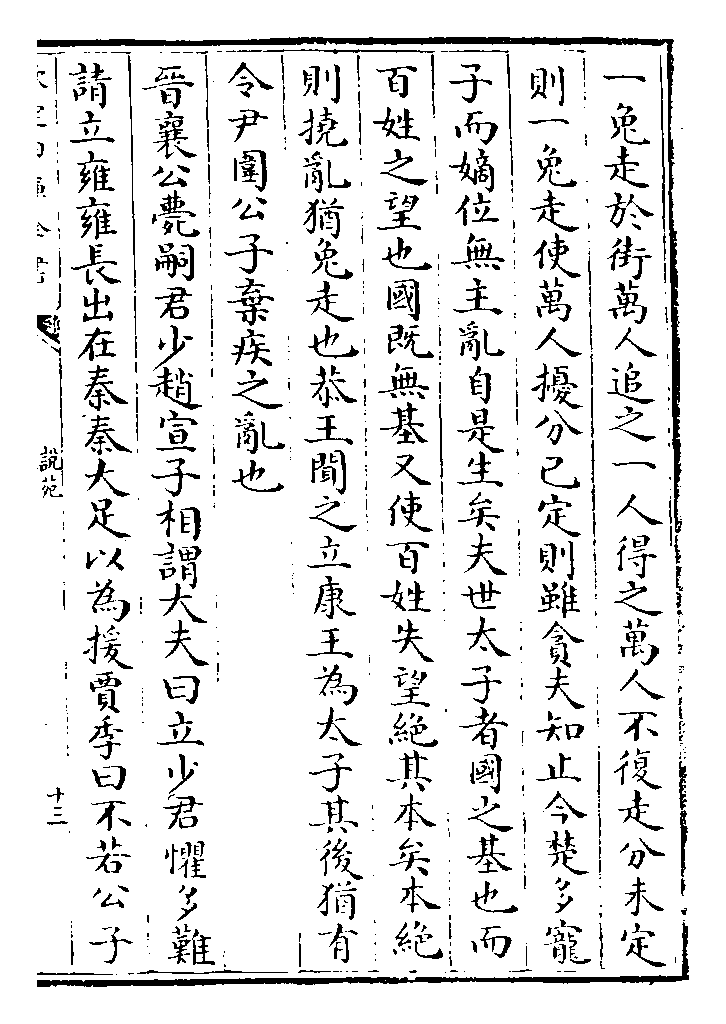 一兔走於街萬人追之一人得之萬人不復走分未定
則一兔走使萬人擾分已定則雖貪夫知止今楚多寵
子而嫡位無主亂自是生矣夫世太子者國之基也而
百姓之望也國既無基又使百姓失望絶其本矣本絶
則撓亂猶兔走也恭王聞之立康王為太子其後猶有
令尹圍公子棄疾之亂也
晉襄公薨嗣君少趙宣子相謂大夫曰立少君懼多難
請立雍雍長出在秦秦大足以為援賈季曰不若公子
說苑
十三